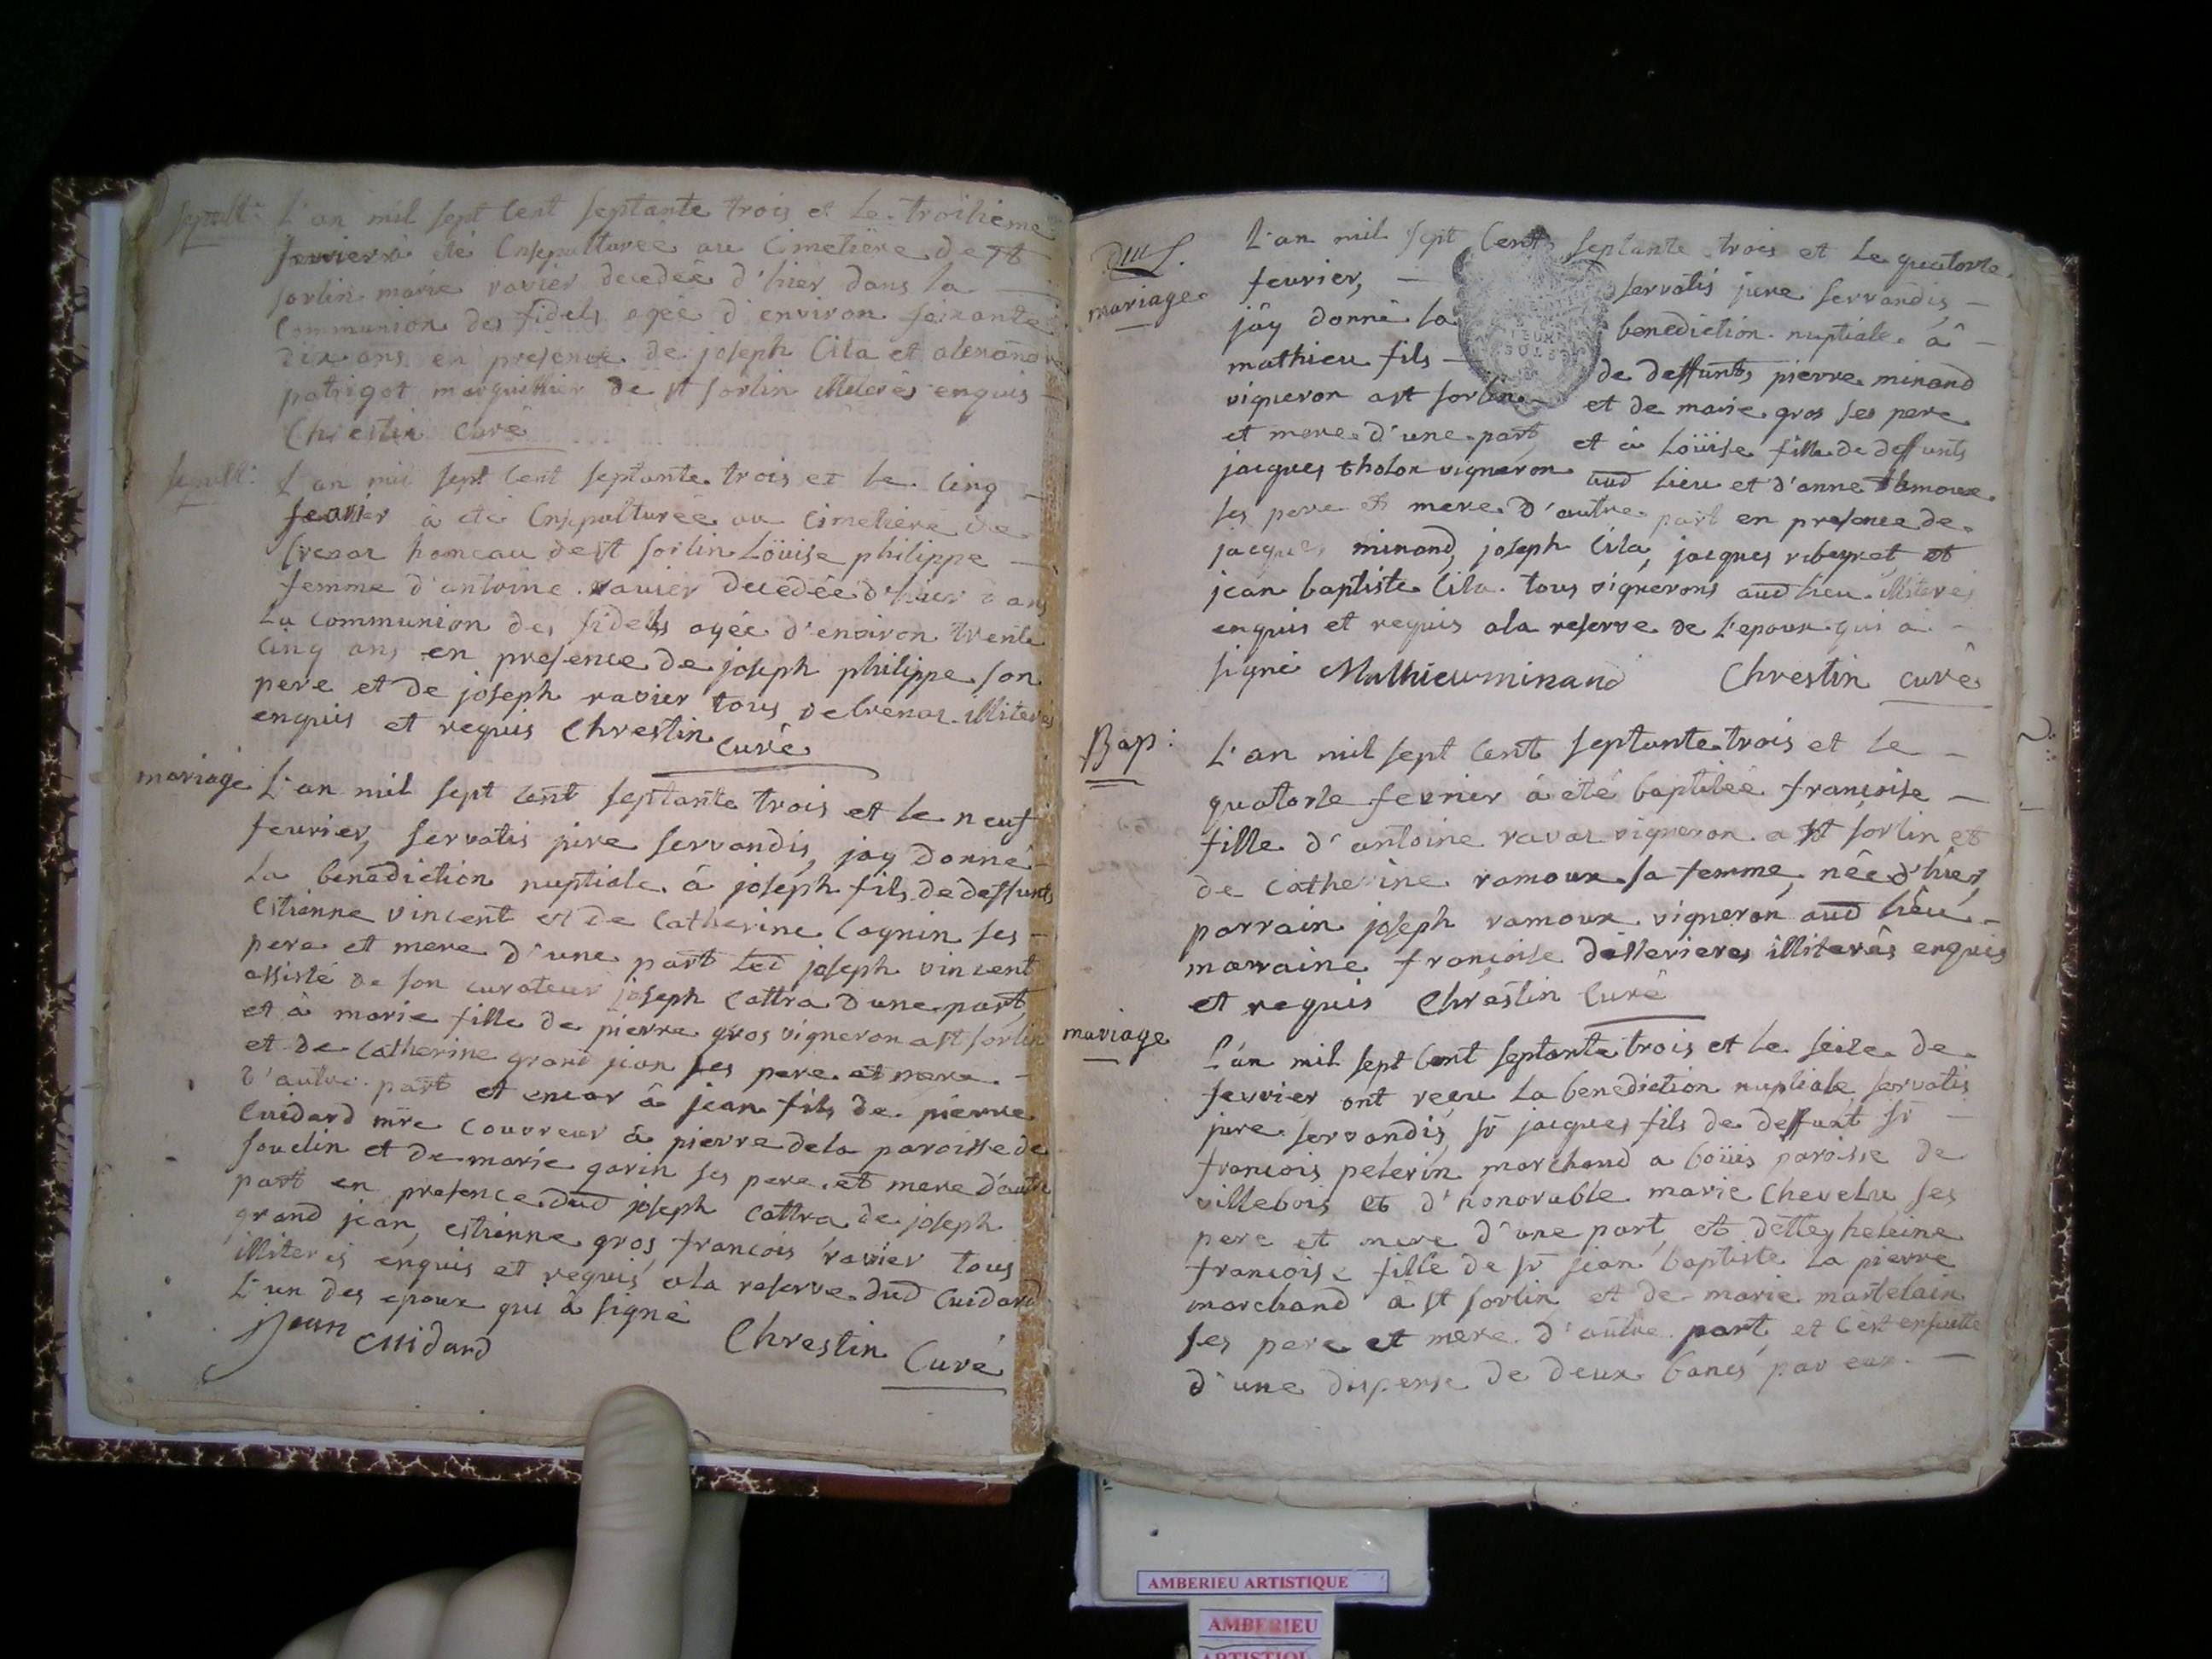 sepult:
L'an mil sept cent septante trois et le troisieme
fevrier à eté ensepulturée au cimetiere de st
sorlin marie ravier decedeé d'hier dans la
communion des fidels ageé d'environ soixante
dix ans en presence de joseph Cila et alexandre
patrigot marguillier de st sorlin illiterés enquis
Chrestin Curé
sepult:
L'an mil sept cent septante trois et le cinq
fevrier à eté ensepulturée au cimetiere de
hameau de st sorlin Loüise philippe
femme d'antoine ravier decedée d'hier dans
La communion des fidels agée d'environ trente
cinq ans en presence de joseph philippe son
pere et de joseph ravier tous illiterés
enquis et requis Chrestin curé
mariage
L'an mil sept cent septante trois et le neuf
fevrier, servatis jure servandis, jay donné
La benediction nuptiale à joseph fils de deffunts
estienne vincent et de Catherine Cognin ses
pere et mere d'une part led joseph vincent
assisté de son curateur joseph Cattra d'une part,
et à marie fille de pierre gros vigneron a st sorlin
et de Catherine grand jean ses pere et mere
d'autre part et encor à jean fils de pierre
Cuidard mre couvreur à pierre de la paroisse de
souclin et de marie garin ses pere et mere d'autre
part en presence dud joseph Cattra de joseph
grand jean, estienne gros françois ravier tous
illiterés enquis et requis a la reserve dud Cuidard
L'un des epoux qui à signé
Jean Cuidard Chrestin Curé
mariage
L'an mil sept Cent septante trois et le quatorze
fevrier, servatis jure servandis,
jäy donné la benediction nuptiale à
mathieu fils de deffunts pierre minand
vigneron a st sorlin et de marie gros ses pere
et mere d'une part, et à Loüise fille de deffunts
jacques tholon vigneron aud lieu et d'anne
ses pere et mere d'autre part en presence de
jacques minand, joseph Cila, jacques et
jean baptiste Cila tous vignerons aud lieu illiterés
enquis et requis a la reserve de L'epoux qui a
signé Mathieu minand Chrestin curé
Bap:
L'an mil sept cent septante trois et le
quatorze fevrier à eté baptisée françoise
fille d'antoine vigneron a st sorlin et
de Catherine ramoux sa femme, née d'hier,
parrain joseph ramoux vigneron aud lieu
marraine françoise illiterés enquis
et requis Chrestin Curé
mariage
L'an mil sept Cent septante trois et le seize de
fevrier ont reçu La benediction nuptiale servatis
jure servandis, sr jacques fils de deffunt sr
françois pelerin marchand a boüis paroisse de
villebois et d'honorable marie Chevelu ses
pere et mere d'une part, et delle heleine
françoise fille de sr jean baptiste La pierre
marchand à st sorlin et de marie martelain
ses pere et mere d'autre part, et c'est ensuitte
d'une dispense de deux bancs par eux
AMBERIEU ARTISTIQUE
AMBERIEU
ARTISTIQUE